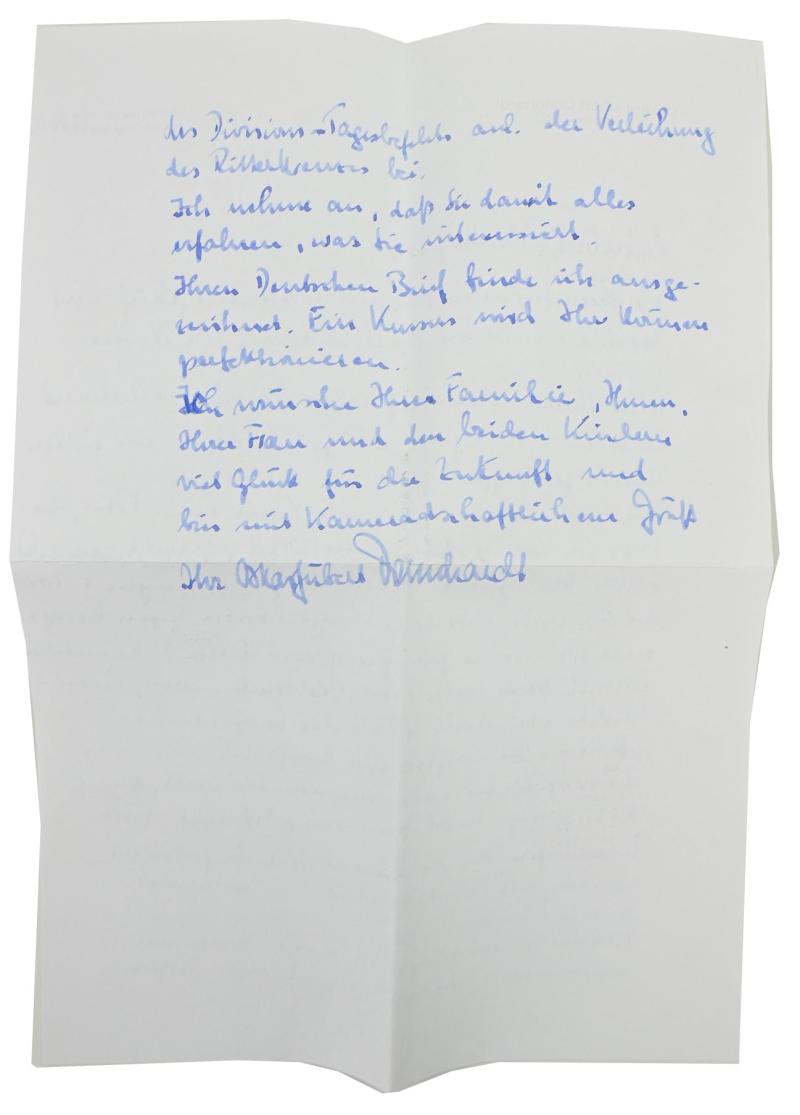 des Divisions-Tagesbefehls anl. der Verleihung
des Ritterkreuzes bei.
Ich nehme an, daß Sie damit alles
erfahren, was Sie interessiert.
Ihren Deutschen Brief finde ich ausge-
zeichnet. Ein Kursus wird Ihr Können
perfektionieren.
Ich wünsche Ihrer Familie, Ihnen,
Ihrer Frau und den beiden Kindern
viel Glück für die Zukunft und
bin mit Kameradschaftlichem Gruß
Ihr